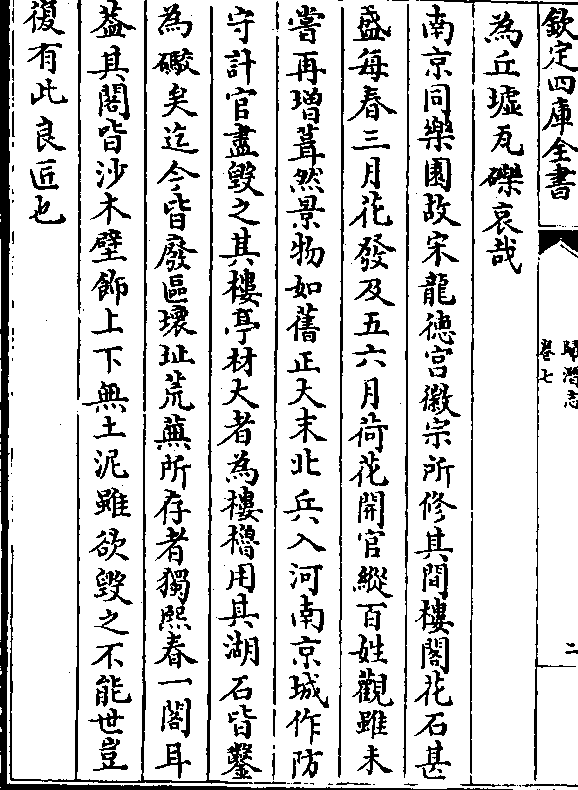 欽定四庫全書
歸潛志
卷七
二
為丘墟瓦礫哀哉
南京同樂園故宋龍徳宫徽宗所修其間樓閣花石甚
盛每春三月花發及五六月荷花開官縱百姓觀雖未
嘗再増葺然景物如舊正大末北兵入河南京城作防
守計官盡毁之其樓亭材大者為樓櫓用其湖石皆鑿
為礮矣迄今皆廢區壞址荒蕪所存者獨熙春一閣耳
葢其閣皆沙木壁飾上下無土泥雖欲毁之不能世豈
復有此良匠也